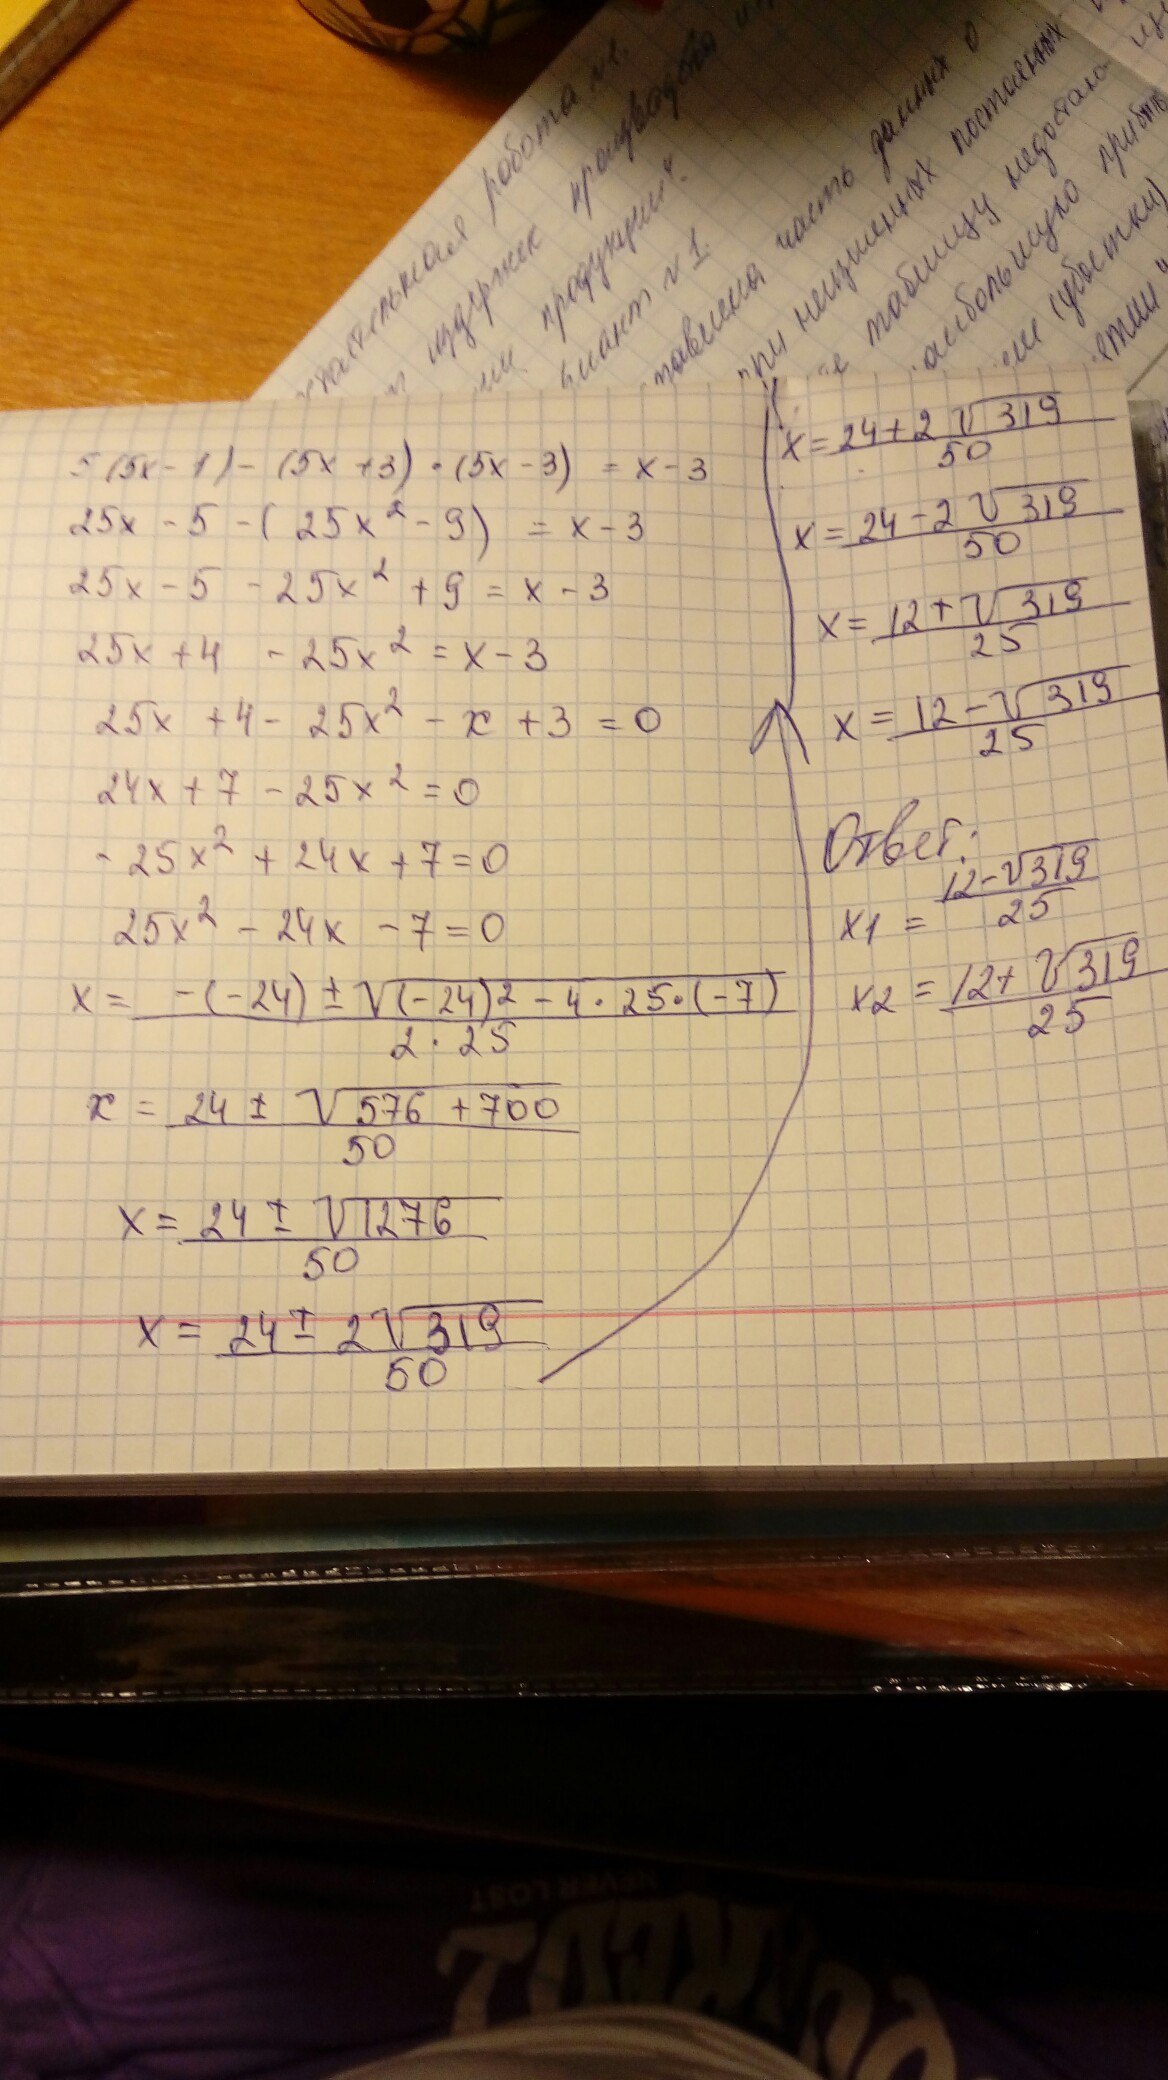 работа
издержек производства
продукции".
вариант № 1.
часть данных о
при неизменных постоянных
таблицу недостаю
наибольшую прибыль
(убытки)
5(5x-1)-(5x+3)·(5x-3) = x-3
25x-5-(25x²-9) = x-3
25x-5-25x²+9=x-3
25x+4-25x²=x-3
25x+4-25x²-x+3=0
24x+7-25x²=0
-25x²+24x+7=0
25x²-24x-7=0
x= -(-24)±√(-24)²-4·25·(-7)
2·25
x = 24±√576+700
50
x= 24±√1276
50
x= 24±2√319
50
x=24+2√319
50
x=24-2√319
50
x=12+√319
25
x=12-√319
25
Ответ:
x1 = 12-√319
25
x2 = 12+√319
25
NEVER LOST